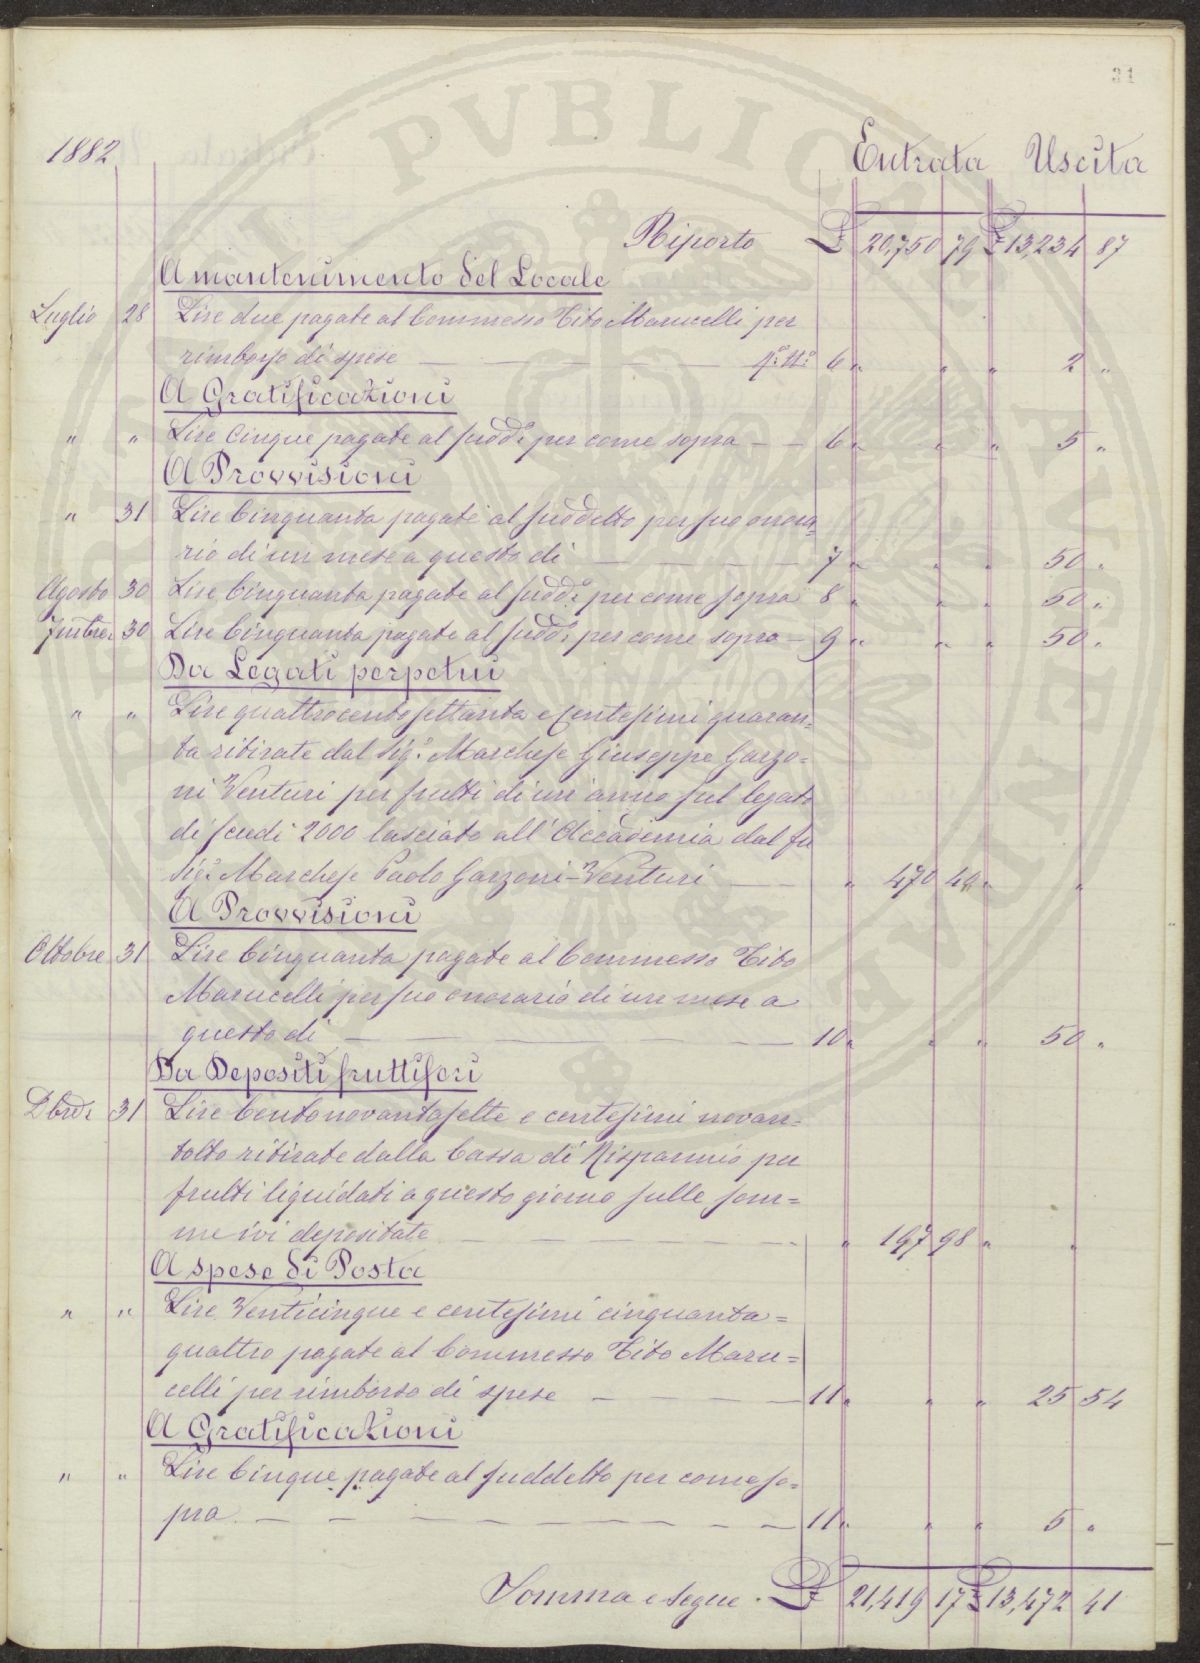 31
1882 Entrata Uscita
Riporto £ 20,750 79 £ 13,234 87
A mantenimento del Locale
Luglio 28 Lire due pagate al Commesso Tito Marucelli per
rimborso di spese — — — — 6 " " " 2 "
A Gratificazioni
" " Lire Cinque pagate al sudd.° per come sopra — — 6 " " " 5 "
A Provvisioni
" 31 Lire Cinquanta pagate al suddetto per suo onora=
rio di un mese a questo dì — — — — 7 " " " 50 "
Agosto 30 Lire Cinquanta pagate al sudd.° per come sopra 8 " " " 50 "
7mbre 30 Lire Cinquanta pagate al sudd.° per come sopra — 9 " " " 50 "
Da Legati perpetui
" " Lire quattrocentosettanta e centesimi quaran=
ta ritirate dal Sig.r Marchese Giuseppe Garzo=
ni Venturi per frutti di un anno sul legato
di scudi 2000 lasciato all'Accademia dal fu
Sig.r Marchese Paolo Garzoni-Venturi — — " 470 40 " "
A Provvisioni
Ottobre 31 Lire Cinquanta pagate al Commesso Tito
Marucelli per suo onorario di un mese a
questo dì — — — — — 10 " " " 50 "
Da Depositi fruttiferi
Dbre 31 Lire Centonovantasette e centesimi novan=
totto ritirate dalla Cassa di Risparmio per
frutti liquidati a questo giorno sulle som=
me ivi depositate — — — — — " 197 98 " "
A spese di Posta
" " Lire Venticinque e centesimi cinquanta=
quattro pagate al Commesso Tito Maru=
celli per rimborso di spese — — — — 11 " " " 25 54
A Gratificazioni
" " Lire Cinque pagate al suddetto per come so=
pra. — — — — — — — — 11 " " " 5 "
Somma e segue. £ 21,419 17 £ 13,472 41